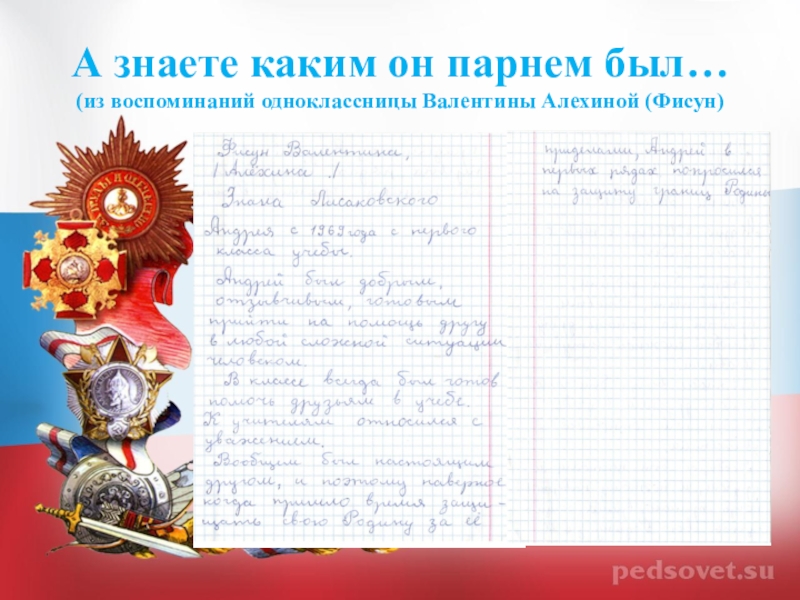 А знаете каким он парнем был…
(из воспоминаний одноклассницы Валентины Алехиной (Фисун)
Фисун Валентина,
/Алёхина./
Знала Лисаковского
Андрея с 1969 года с первого
класса учебы.
Андрей был добрым,
отзывчивым, готовым
прийти на помощь другу
в любой сложной ситуации
человеком.
В классе всегда был готов
помочь друзьям в учебе.
К учителям относился с
уважением.
Вообщем был настоящим
другом, и поэтому наверное
когда пришло время защи-
щать свою Родину за её
пределами, Андрей в
первых рядах попросился
на защиту границ Родины
pedsovet.su